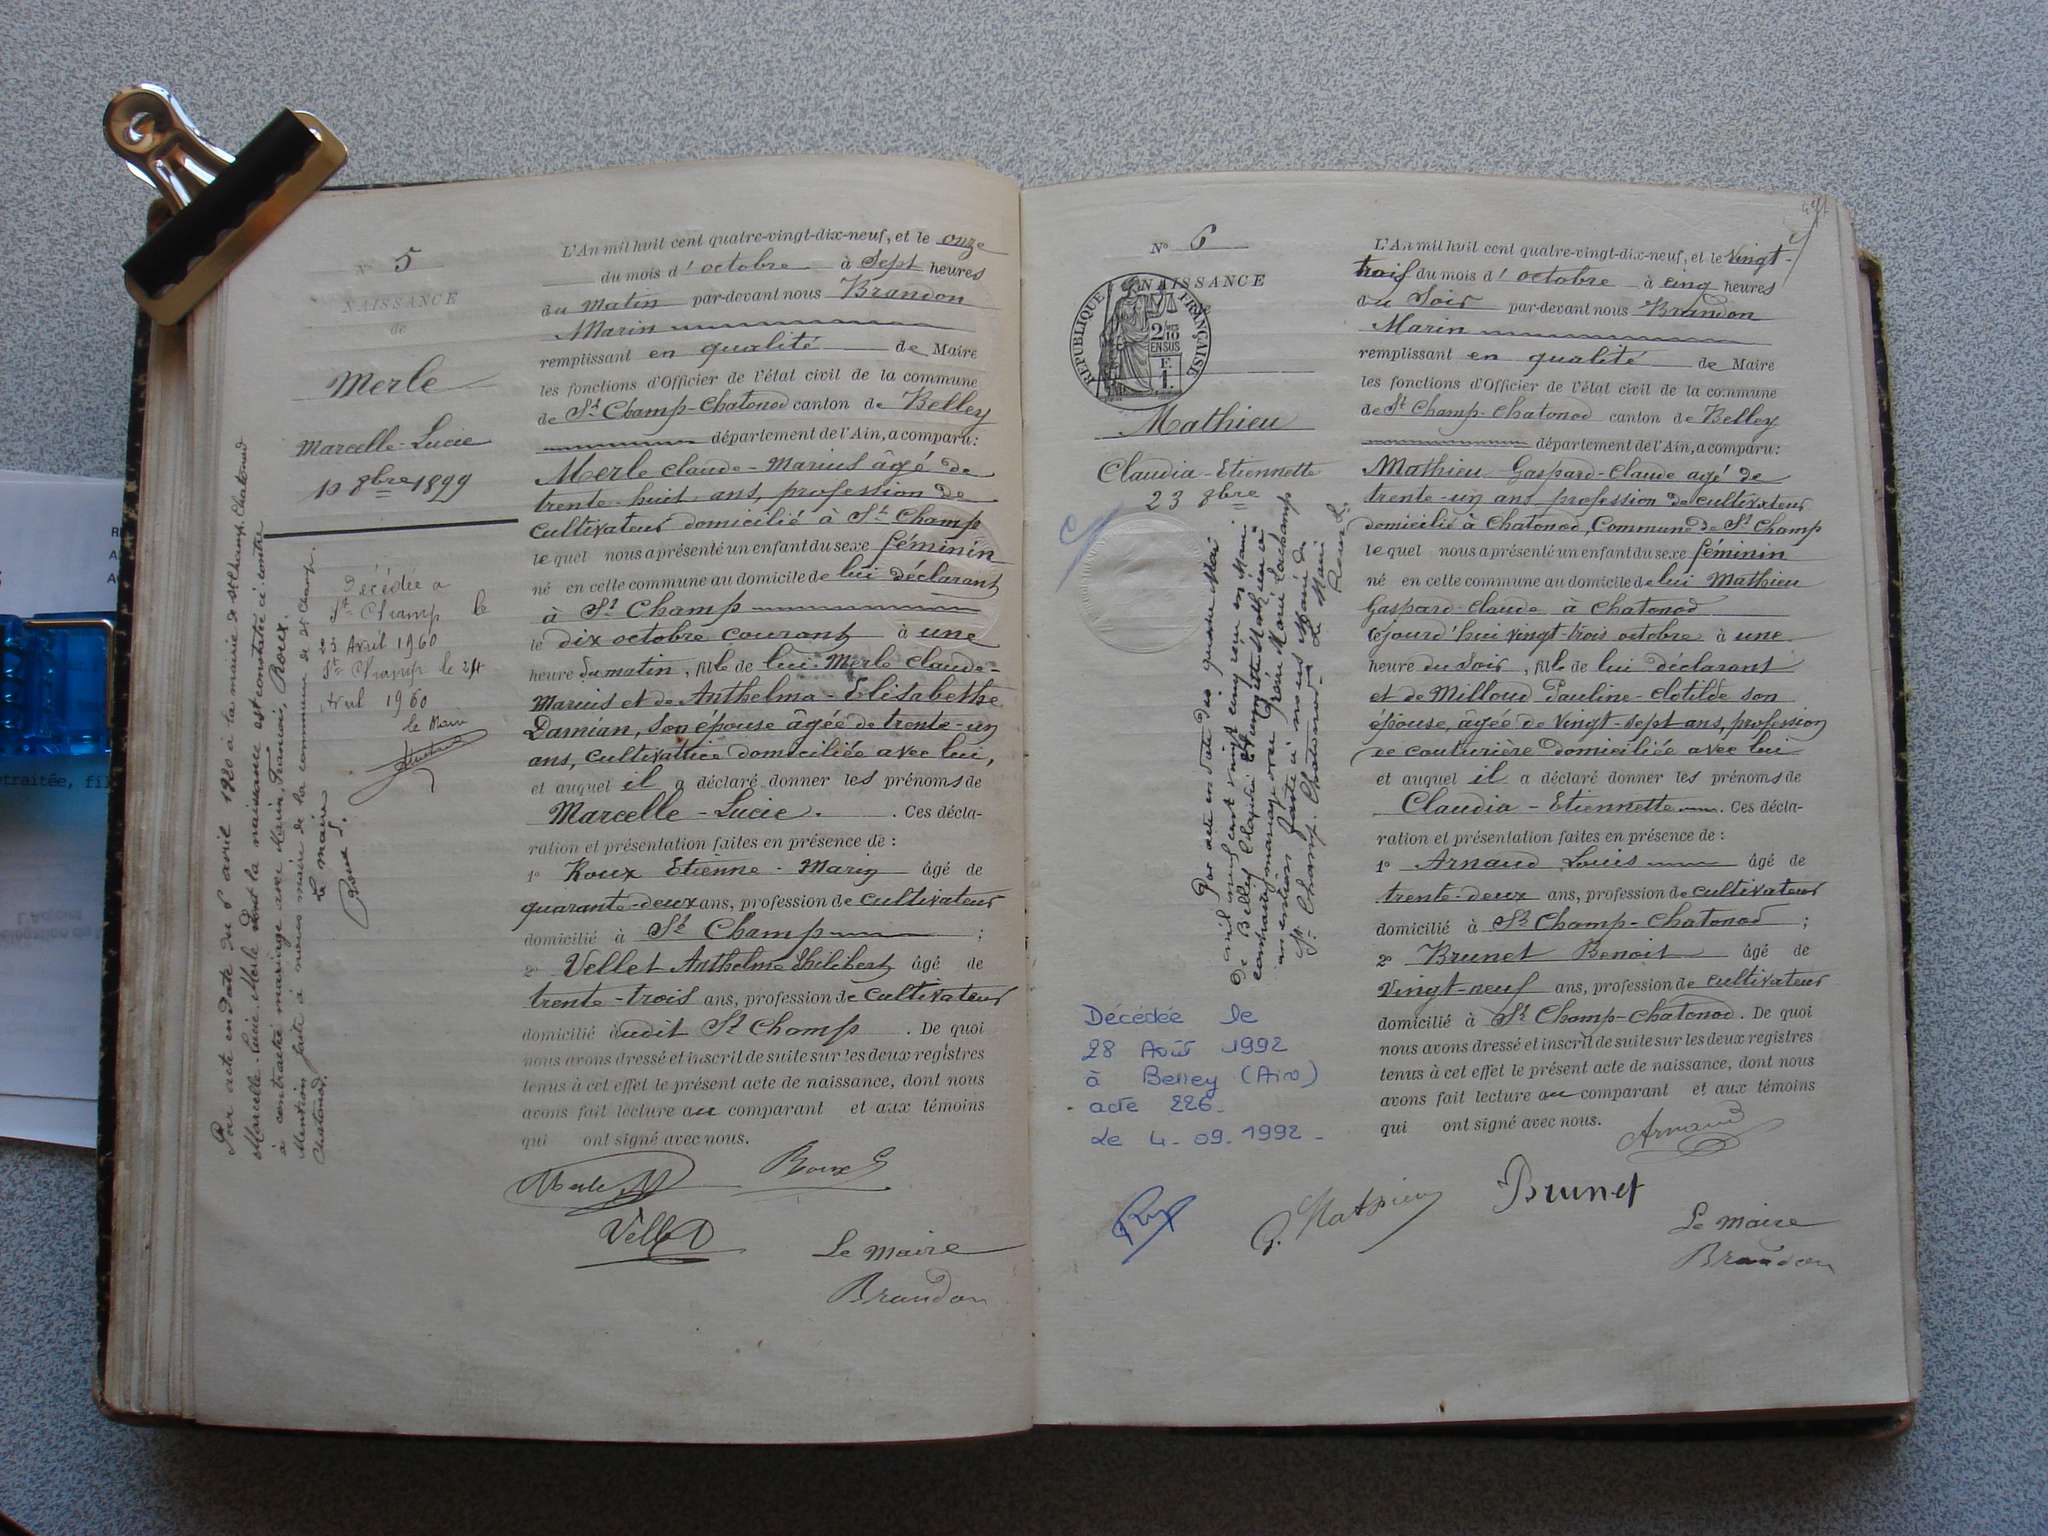 N° 5
NAISSANCE
de
Merle
Marcelle-Lucie
10 8bre 1899
Décédée a
St Champ le
23 Avril 1960
St Champ le 24
Avril 1960
le Maire
Par acte en date du 6 avril 1920 à la mairie de St Champ-Chatonod
Marcelle-Lucie Merle dont la naissance est constatée ci-contre
a contracté mariage avec Marin, François, Roux.
Mention faite à nous maire de la commune de St Champ-
Chatonod.
Le maire
Roux L.
L'An mil huit cent quatre-vingt-dix-neuf, et le onze
du mois d'octobre à Sept heures
du Matin par-devant nous Brandon
Marin
remplissant en qualité de Maire
les fonctions d'Officier de l'état civil de la commune
de St Champ-Chatonod canton de Belley
département de l'Ain, a comparu:
Merle Claude-Marius âgé de
trente-huit ans, profession de
Cultivateur domicilié à St Champ
lequel nous a présenté un enfant du sexe féminin
né en cette commune au domicile de lui déclarant
à St Champ
le dix octobre courant à une
heure du matin, fille de lui Merle Claude-
Marius et de Anthelma-Elisabethe
Damian, son épouse âgée de trente-un
ans, cultivatrice domiciliée avec lui,
et auquel il a déclaré donner les prénoms de
Marcelle-Lucie. Ces décla-
ration et présentation faites en présence de :
1° Roux Etienne-Marin âgé de
quarante-deux ans, profession de cultivateur
domicilié à St Champ ;
2° Vellet Anthelme Philibert âgé de
trente-trois ans, profession de cultivateur
domicilié audit St Champ . De quoi
nous avons dressé et inscrit de suite sur les deux registres
tenus à cet effet le présent acte de naissance, dont nous
avons fait lecture au comparant et aux témoins
qui ont signé avec nous.
Merle M
Roux E
Vellet
Le Maire
Brandon
N° 6
NAISSANCE
RÉPUBLIQUE FRANÇAISE
2/10
EN SUS
F.
1.
Mathieu
Claudia-Etiennette
23 8bre
Par acte en date du quatre Mai
mil neuf cent vingt cinq reçu en Mairie
de Belley Claudia Etiennette Mathieu a
contracté mariage avec Marie Lachamp
mention faite à nous Maire de
St Champ-Chatonod Le Maire
Roux L.
Décédée le
28 Août 1992
à Belley (Ain)
acte 226.
Le 4.09.1992.
L'An mil huit cent quatre-vingt-dix-neuf, et le vingt-
trois du mois d'octobre à cinq heures
du Soir par-devant nous Brandon
Marin
remplissant en qualité de Maire
les fonctions d'Officier de l'état civil de la commune
de St Champ-Chatonod canton de Belley
département de l'Ain, a comparu:
Mathieu Gaspard-Claude agé de
trente-un ans profession de cultivateur
domicilié à Chatonod, Commune de St Champ
lequel nous a présenté un enfant du sexe féminin
né en cette commune au domicile de lui Mathieu
Gaspard-Claude à Chatonod
cejourd'hui vingt-trois octobre à une
heure du Soir, fille de lui déclarant
et de Milloud Pauline-Clotilde son
épouse, âgée de vingt-sept ans, profession
de couturière domiciliée avec lui
et auquel il a déclaré donner les prénoms de
Claudia-Etiennette. Ces décla-
ration et présentation faites en présence de :
1° Arnaud Louis âgé de
trente-deux ans, profession de cultivateur
domicilié à St Champ-Chatonod ;
2° Brunet Benoit âgé de
vingt-neuf ans, profession de cultivateur
domicilié à St Champ-Chatonod. De quoi
nous avons dressé et inscrit de suite sur les deux registres
tenus à cet effet le présent acte de naissance, dont nous
avons fait lecture au comparant et aux témoins
qui ont signé avec nous.
Arnaud
G. Mathieu
Brunet
Le Maire
Brandon
etraitée, fil